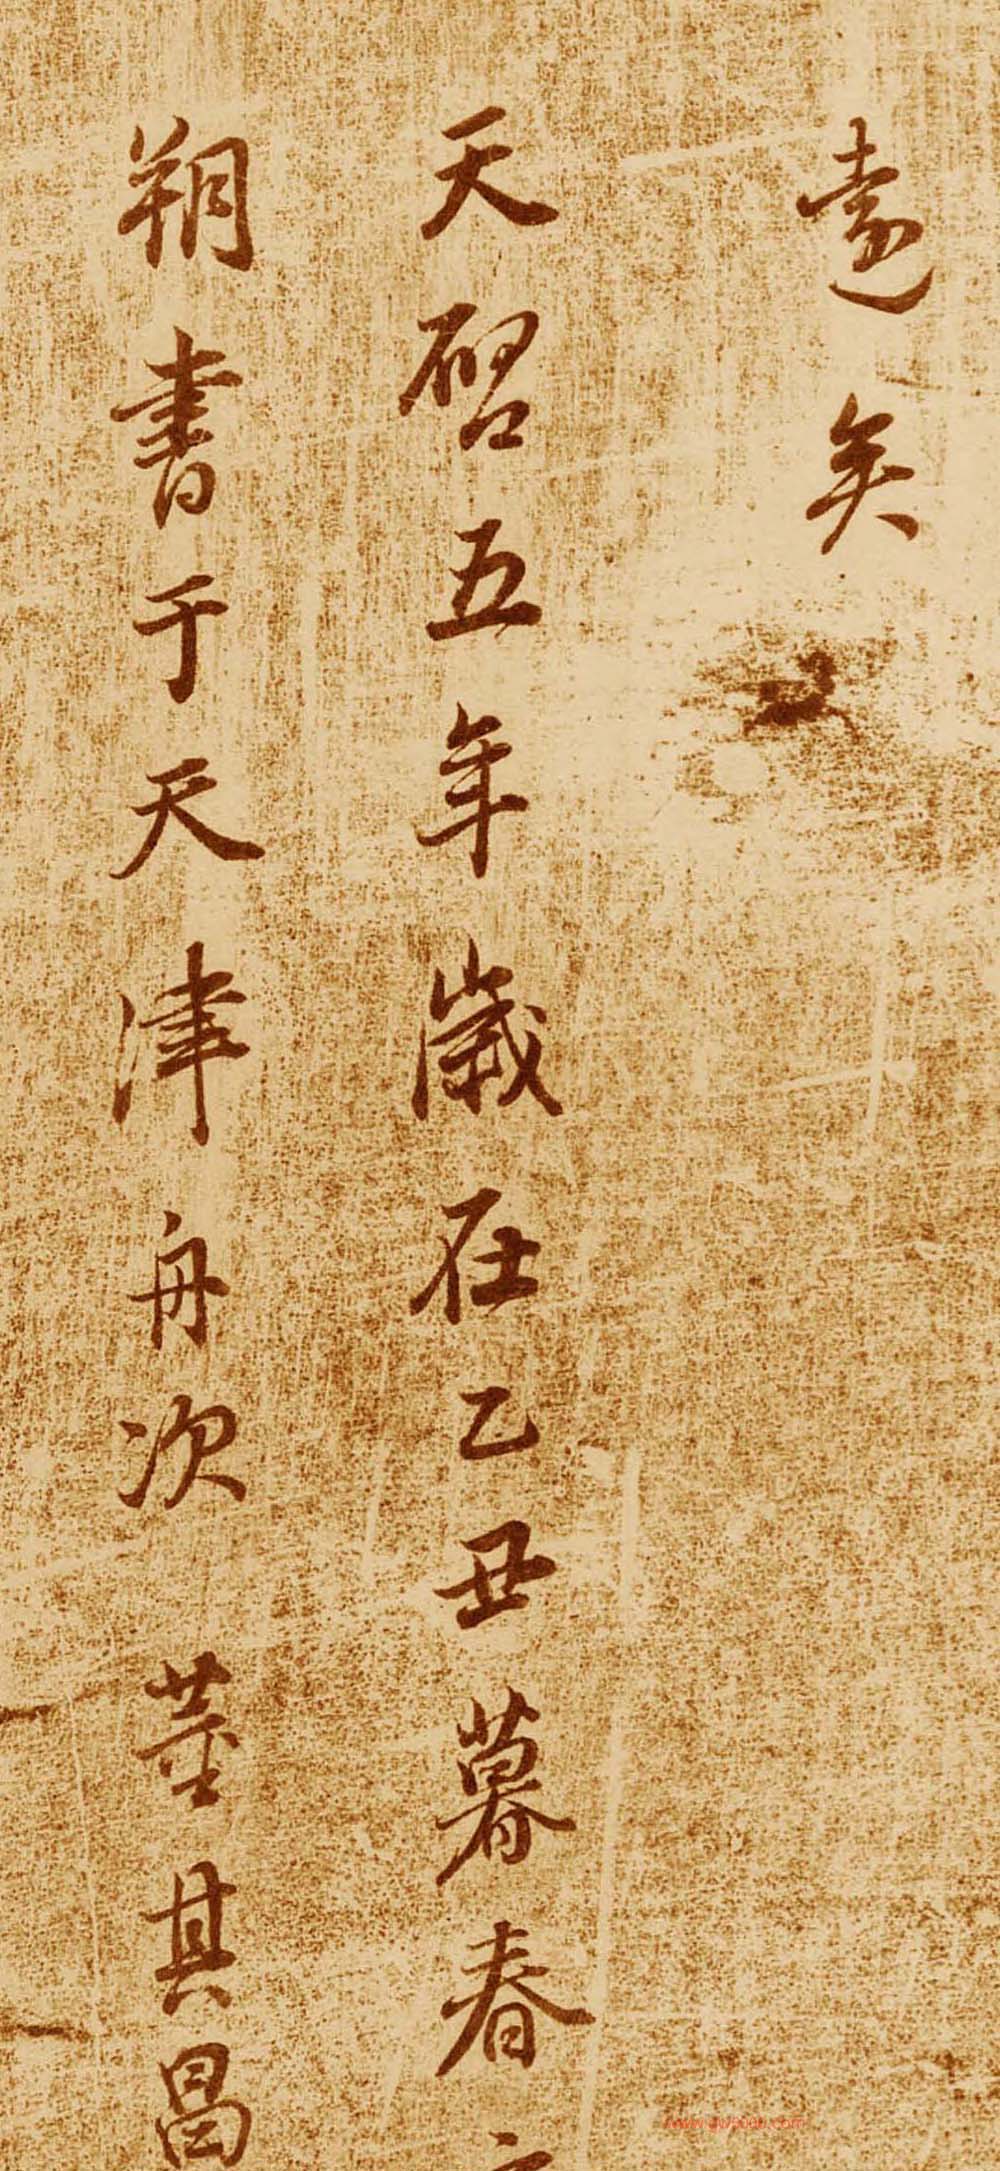 遠矣
天啓五年歲在乙丑暮春
朔書于天津舟次 董其昌